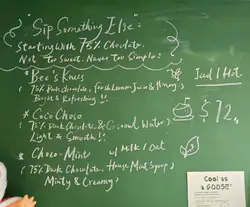 "Sip Something Else":
Starting With 75% Chocolate.
Not Too Sweet. Never Too Simple!
* Bee's Knees
(75% Dark Chocolate, Fresh Lemon Juice & Honey)
Bright & Refreshing!!
* Coco Choco
(75% Dark Chocolate & Coconut Water)
Light & Smooth!!
* Choco-Mint w/ Milk/Oat
(75% Dark Chocolate, House Mint Syrup)
Minty & Creamy
Iced/Hot
$12
Cool as
a GOOSE